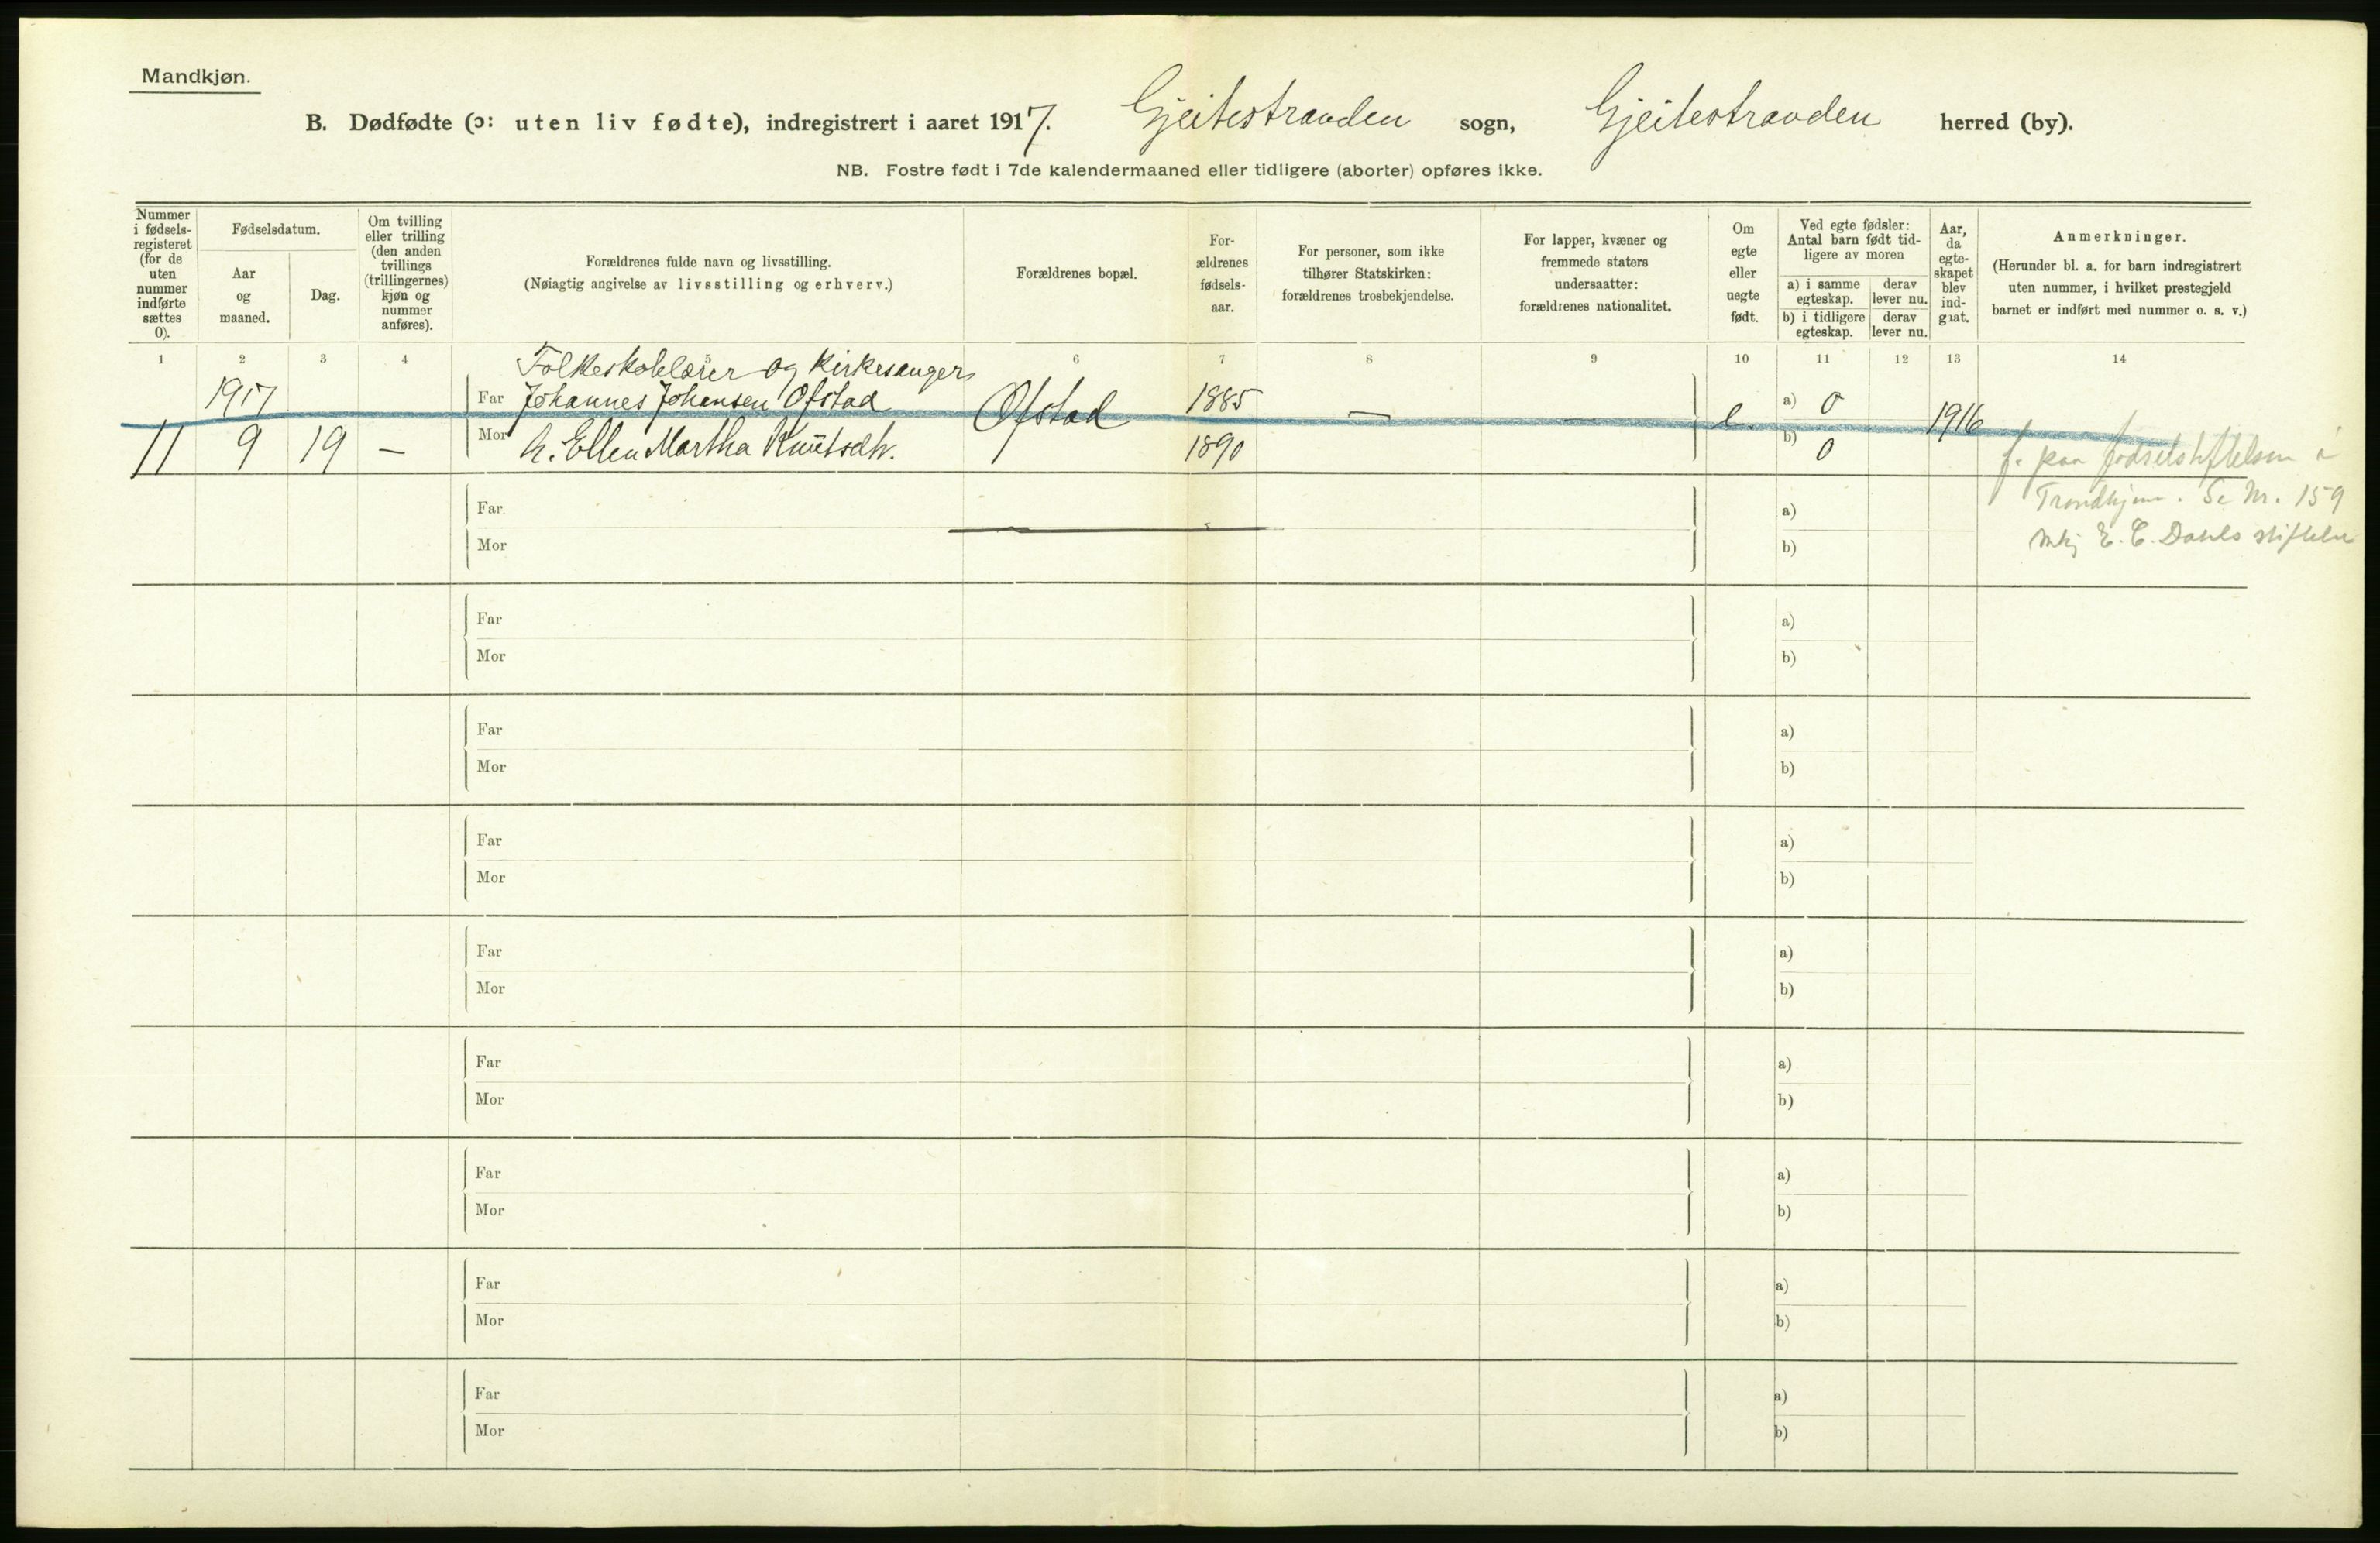 Mandkjøn.
B. Dødfødte (ɔ: uten liv fødte), indregistrert i aaret 1917. Gjeitestranden sogn, Gjeitestranden herred (by).
NB. Fostre født i 7de kalendermaaned eller tidligere (aborter) opføres ikke.
Nummer i fødsels-registeret (for de uten nummer indførte sættes 0).
Fødselsdatum.
Aar og maaned.
Dag.
Om tvilling eller trilling (den anden tvillings (trillingernes) kjøn og nummer anføres).
Forældrenes fulde navn og livsstilling.
(Nøiagtig angivelse av livsstilling og erhverv.)
Forældrenes bopæl.
For-ældrenes fødsels-aar.
For personer, som ikke tilhører Statskirken: forældrenes trosbekjendelse.
For lapper, kvæner og fremmede staters undersaatter: forældrenes nationalitet.
Om egte eller uegte født.
Ved egte fødsler: Antal barn født tid-ligere av moren
a) i samme egteskap.
derav lever nu.
b) i tidligere egteskap.
derav lever nu.
Aar, da egte-skapet blev ind-gaat.
Anmerkninger.
(Herunder bl. a. for barn indregistrert uten nummer, i hvilket prestegjeld barnet er indført med nummer o. s. v.)
1 2 3 4 6 7 8 9 10 11 12 13 14
Folkeskolelærer og Kirkesanger
1917 Far Johannes Johansen Ofstad Ofstad 1885 — — e. a) 0 1916
11 9 19 — Mor h. Ellen Martha Knutsdtr. 1890 b) 0
f. paa fødselstiftelsen i
Trondhjem. Se Nr. 159
mkj E. C. Dahls stiftelse
Far a)
Mor b)
Far a)
Mor b)
Far a)
Mor b)
Far a)
Mor b)
Far a)
Mor b)
Far a)
Mor b)
Far a)
Mor b)
Far a)
Mor b)
Far a)
Mor b)